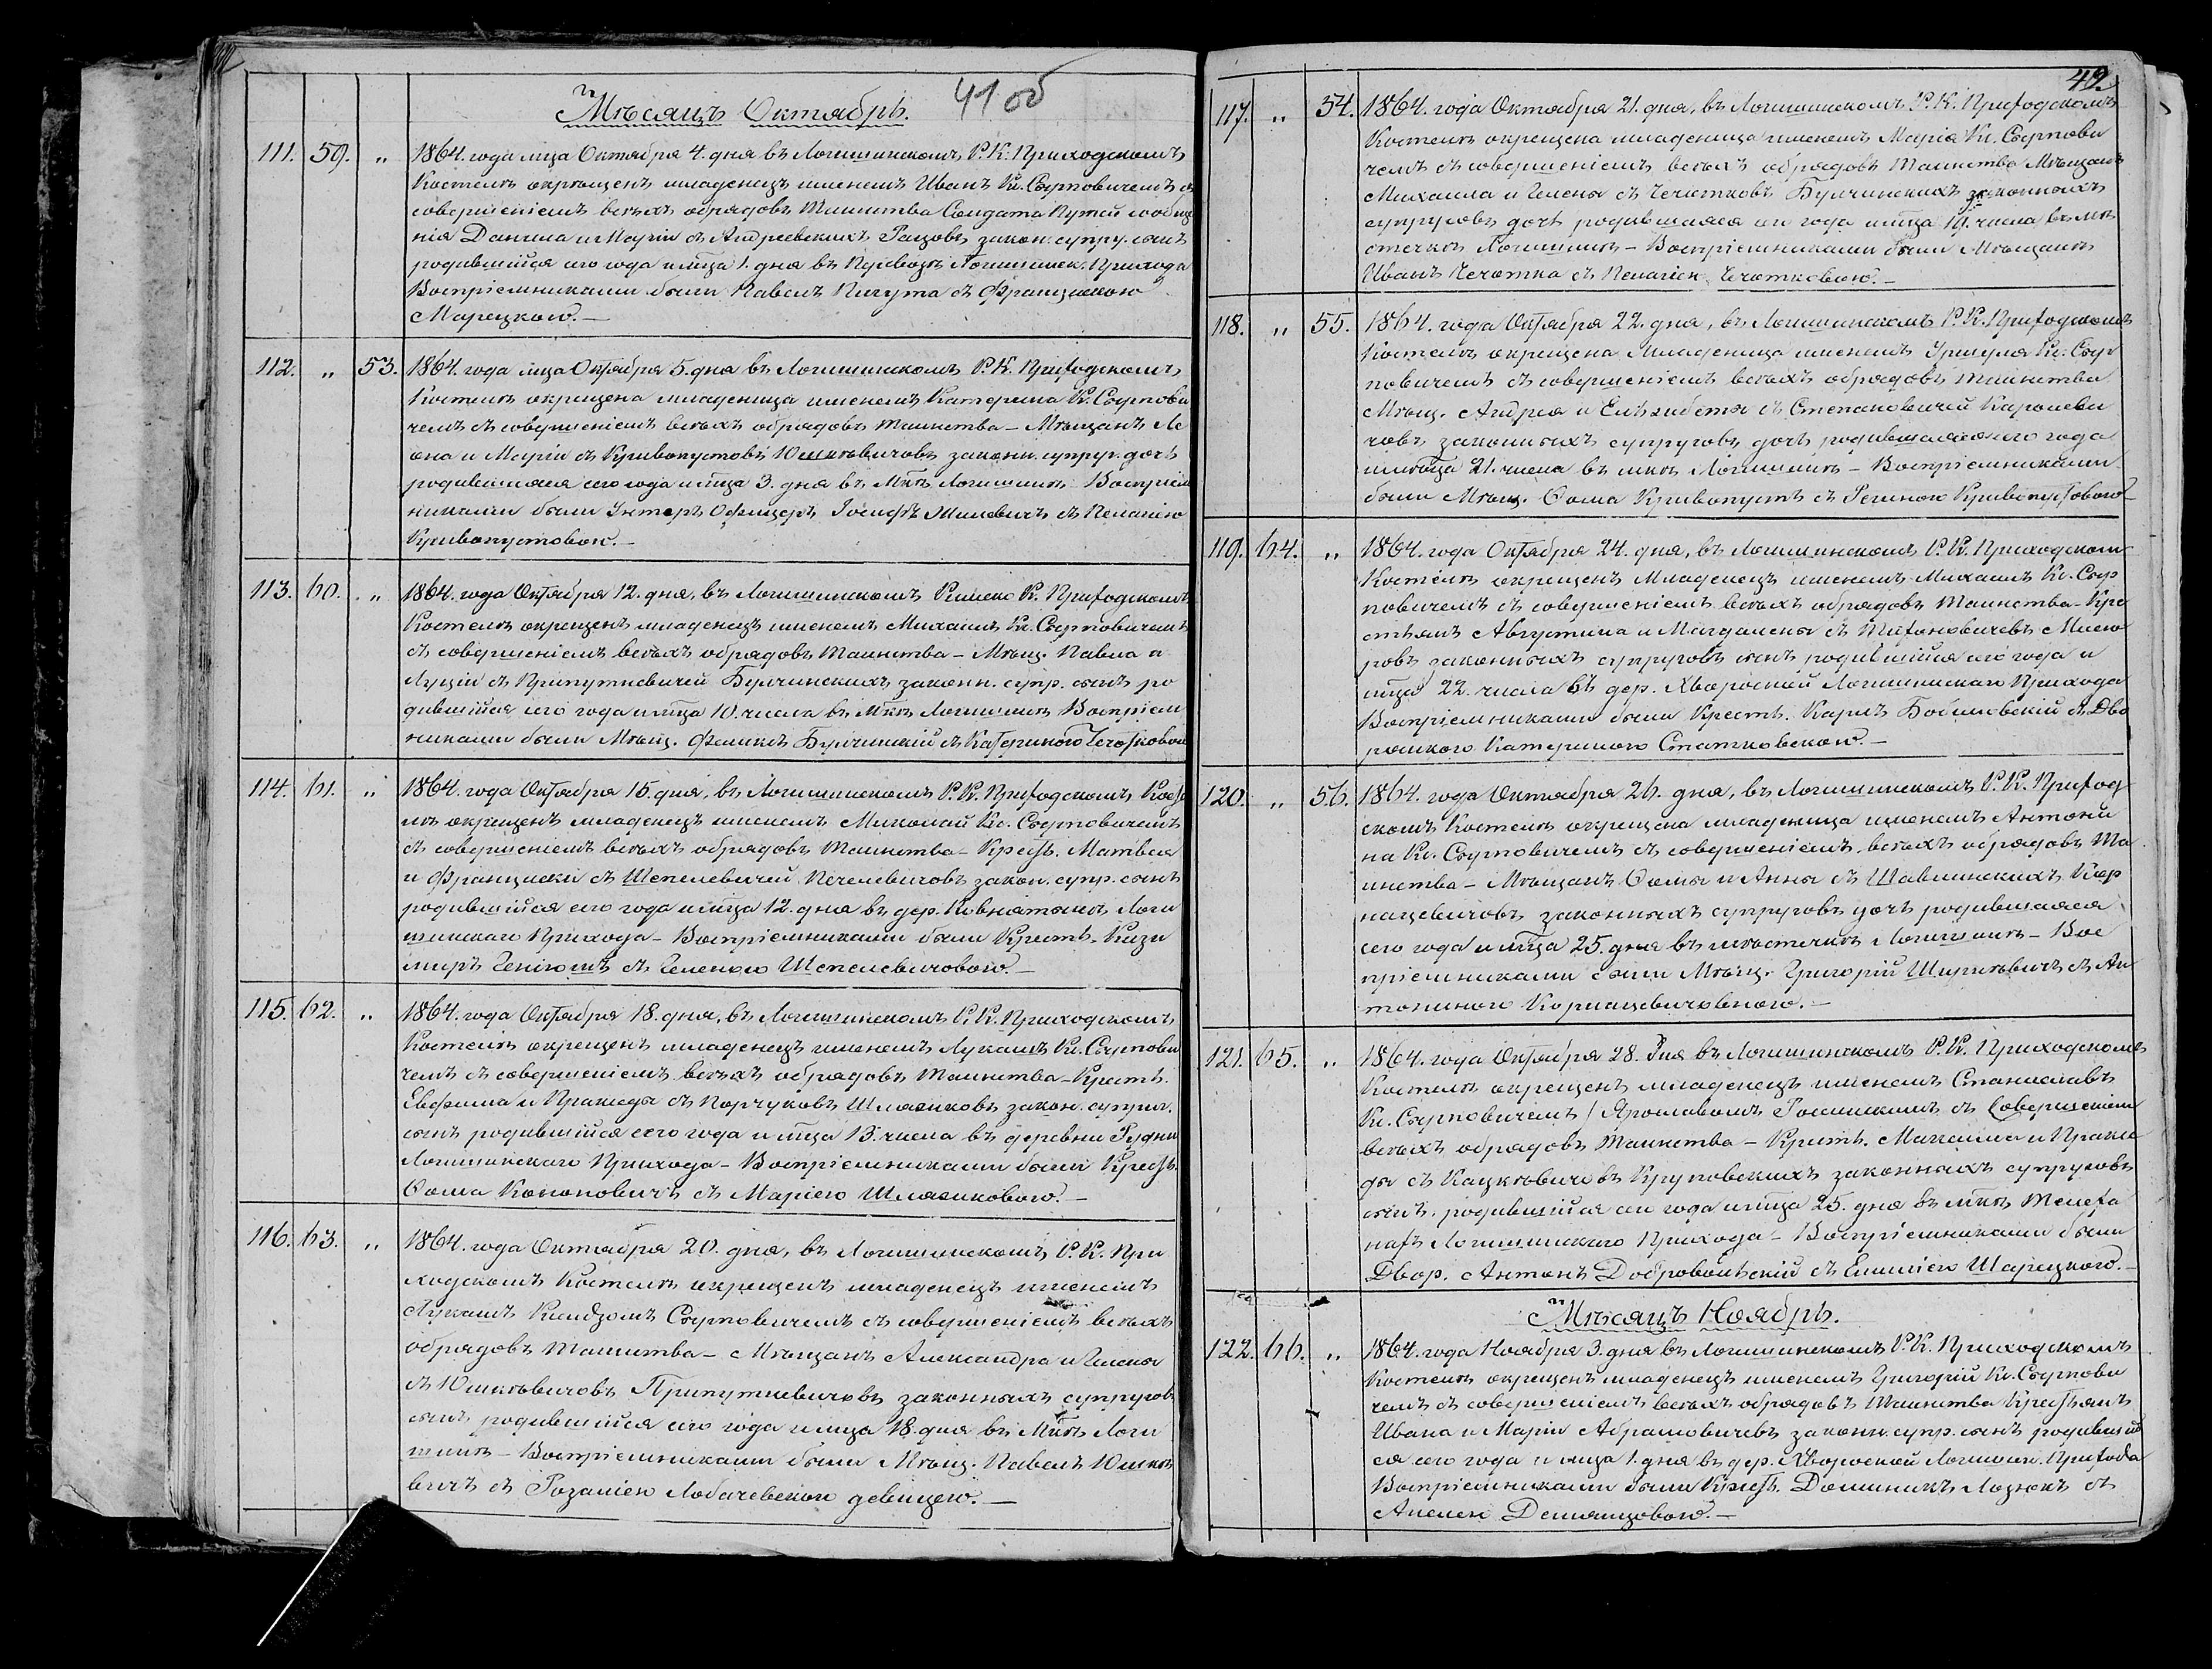 41 об
Мѣсяцъ Октябрь.
111. 59. „ 1864. года мца Октября 4. дня въ Логишинскомъ Р. К. Приходскомъ
Костелѣ окрещенъ младенецъ именемъ Иванъ Кс. Сырповичемъ съ
совершеніемъ всѣхъ обрядовъ Таинства Солдата Путей сообще
нія Даніила и Маріи съ Андреевскихъ закон. супру. сынъ
родившійся сего года и мца 1. дня въ Логишинск. Прихода
Воспріемниками были Павелъ Пигута съ Францишкою
Марецкою. —
112. „ 53. 1864. года мца Октября 5. дня въ Логишинскомъ Р. К. Приходскомъ
Костелѣ окрещена младеница именемъ Катерина К. Сырпови
чемъ съ совершеніемъ всѣхъ обрядовъ таинства — Мѣщанъ Ле
она и Маріи съ Кривопустовъ Юшкѣвичовъ законн. супруг. дочь
родившаяся сего года и мца 3. дня въ Мкѣ Логишинѣ Воспріем
никами были Унтеръ Офицеръ Іосифъ Милевичъ съ Пелагіею
Кривопустовою. —
113. 60. „ 1864. года Октября 12. дня, въ Логишинскомъ Римско К. Приходскомъ
Костелѣ окрещенъ младенецъ именемъ Михаилъ Кс. Сырповичемъ
съ совершеніемъ всѣхъ обрядовъ Таинства — Мѣщ. Павла и
Луціи съ Припутневичей Булчинскихъ законн. супр. сынъ ро
дившійся сего года и мца 10. числа въ Мкѣ Логишинѣ Воспріем
никами были Мѣщ. Феликсъ Булчинскій съ Катериною Чечотковою
114. 61. „ 1864. года Октября 15. дня, въ Логишинскомъ Р. К. Приходскомъ Косте
лѣ окрещенъ младенецъ именемъ Миколай Кс. Сырповичемъ
съ совершеніемъ всѣхъ обрядовъ Таинства — Крест. Матвѣя
и Францишки съ Шепелевичей Пселевичовъ закон. супр. сынъ
родившійся сего года и мца 12. дня въ дер. Ковнятынѣ Логи
шинскаго Прихода — Воспріемниками были Крест. Кази
миръ съ Геленою Шепелевичовою. —
115. 62. „ 1864. года Октября 18. дня, въ Логишинскомъ Р. К. Приходскомъ
Костелѣ окрещенъ младенецъ именемъ Лукашъ Кс. Сырпови
чемъ съ совершеніемъ всѣхъ обрядовъ Таинства — Крест.
Евфима и Пракседы съ Порчуковъ Шлапиковъ закон. супруг.
сынъ родившійся сего года и мца 15. числа въ деревни Рудни
Логишинскаго Прихода — Воспріемниками были Крест.
Ѳома Кононовичъ съ Маріею Шлапиковою. —
116. 63. „ 1864. года Октября 20. дня, въ Логишинскомъ Р. К. При
ходскомъ Костелѣ окрещенъ младенецъ именемъ
Лукашъ Ксіендзомъ Сырповичемъ съ совершеніемъ всѣхъ
обрядовъ Таинства — Мѣщанъ Александра и Гелены
съ Юшкѣвичовъ Припутневичовъ законныхъ супруговъ
сынъ родившійся сего года и мца 18. дня въ Мкѣ Логи
шинѣ — Воспріемниками были Мѣщ. Павелъ Юшкѣ
вичъ съ Розаліею Лобачевскою девицею. —
42.
117. „ 54. 1864. года Октября 21. дня, въ Логишинскомъ Р. К. Приходскомъ
Костелѣ окрещена младеница именемъ Марія Кс. Сырпови
чемъ съ совершеніемъ всѣхъ обрядовъ таинства Мѣщанъ
Михаила и Гелены съ Чечотковъ Булчинскихъ законныхъ
супруговъ дочь родившаяся сего года и мца 19. числа, въ мѣ
стечкѣ Логишинѣ — Воспріемниками были Мѣщане
Иванъ Чечотка съ Пелагіею Чечотковою. —
118. „ 55. 1864. года Октября 22. дня, въ Логишинскомъ Р. К. Приходскомъ
Костелѣ окрещена Младеница именемъ Уршуля Кс. Сыр
повичемъ съ совершеніемъ всѣхъ обрядовъ таинства
Мѣщ. Андрея и Елѣзабеты съ Степановичей Каролеви
човъ законныхъ супруговъ дочь родившаяся сего года
и мѣсяца 21. числа въ мкѣ Логишинѣ — Воспріемниками
были Мѣщ. Ѳома Кривопустъ съ Региною Кривопустовою
119. 64. „ 1864. года Октября 24. дня, въ Логишинскомъ Р. К. Приходском
Костелѣ окрещенъ Младенецъ именемъ Михаилъ Кс. Сыр
повичемъ съ совершеніемъ всѣхъ обрядовъ Таинства — Кре
стьянъ Августина и Магдалены съ Тихоновичевъ
законныхъ супруговъ сынъ родившійся сего года и
мца 22. числа въ дер. Хворосной Логишинскаго Прихода
Воспріемниками были Крест. Карлъ съ Дво
рянкою Катериною Статкевскою. —
120. „ 56. 1864. года Октября 26. дня, въ Логишинскомъ Р. К. Приход
скомъ Костелѣ окрещена младеница именемъ Антони
на Кс. Сырповичемъ съ совершеніемъ всѣхъ обрядовъ Та
инства — Мѣщанъ Ѳомы и Анны съ Шавлинскихъ Кор
нацевичовъ законныхъ супруговъ дочь родившаяся
сего года и мца 25. дня въ мѣстечкѣ Логишинѣ — Вос
пріемниками были Мѣщ. Григорій съ Ан
тониною Корнацевичовною. —
121. 65. „ 1864. года Октября 28. дня въ Логишинскомъ Р. К. Приходскомъ
Костелѣ окрещенъ младенецъ именемъ Станиславъ
Кс. Сырповичемъ / Ярославомъ съ Совершеніемъ
всѣхъ обрядовъ Таинства — Крест. Максима и Праксе
ды съ Кацкѣвичовъ Круповскихъ законныхъ супруговъ
сынъ родившійся сего года и мца 25. дня въ мкѣ Телеха
нахъ Логишинскаго Прихода — Воспріемниками были
Двор. Антонъ Добровольскій съ Емиліею Шарецкою. —
Мѣсяцъ Ноябрь.
122. 66. „ 1864. года Ноября 3. дня въ Логишинскомъ Р. К. Приходскомъ
Костелѣ окрещенъ младенецъ именемъ Григорій Кс. Сырпови
чемъ съ совершеніемъ всѣхъ обрядовъ Таинства Крестьянъ
Ивана и Маріи Абрамовичевъ законн. супр. сынъ родившій
ся сего года и мца 1. дня въ дер. Хворосной Логишин. Прихода
Воспріемниками были Крест. Доминикъ Лозюкъ съ
Анелею Демянцовою. —